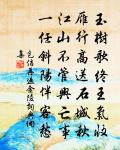 玉樹歌終王氣收
雁行高送石城秋
江山不管興亡事
一任斜陽伴客愁
包佶再過金陵詞句
集